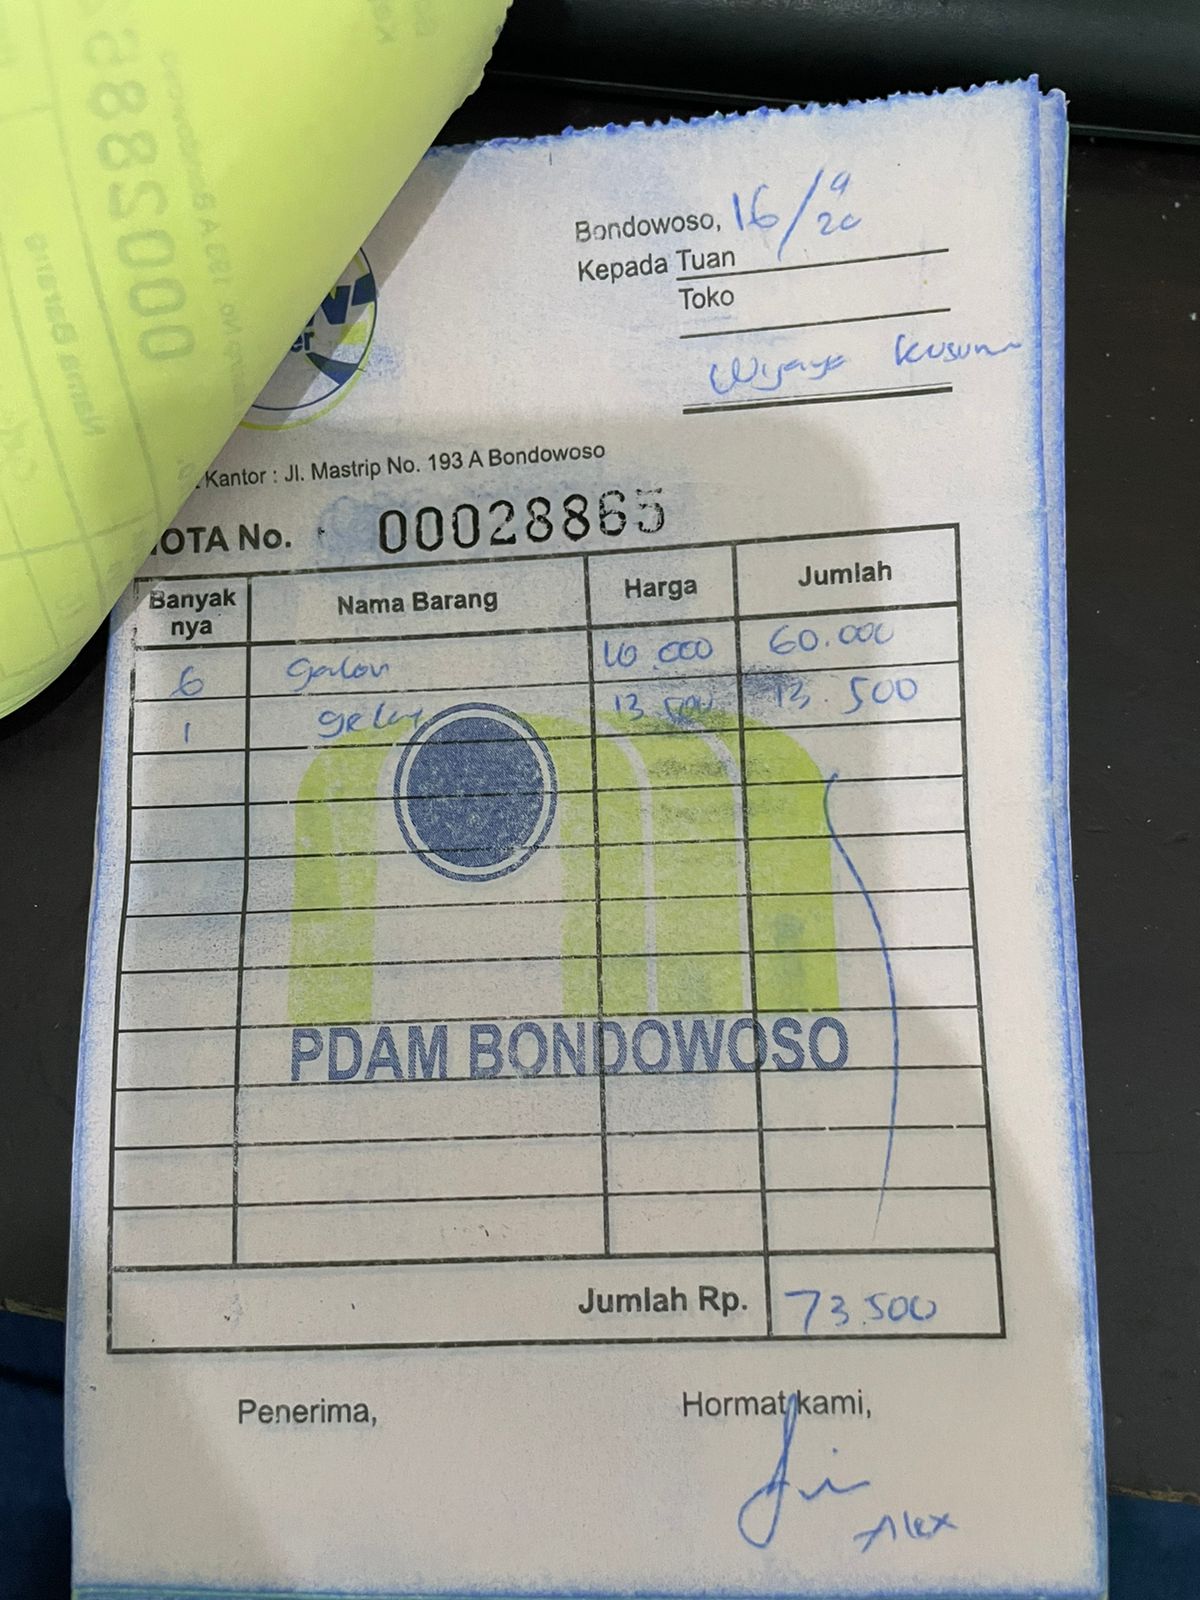 Bondowoso, 16/9 20
Kepada Tuan
Toko
Wijaya Kusuma
Kantor : Jl. Mastrip No. 193 A Bondowoso
OTA No. 00028865
Banyak nya Nama Barang Harga Jumlah
6 galon 10.000 60.000
1 gelas 13.500 13.500
PDAM BONDOWOSO
Jumlah Rp. 73.500
Penerima, Hormat kami,
Alex